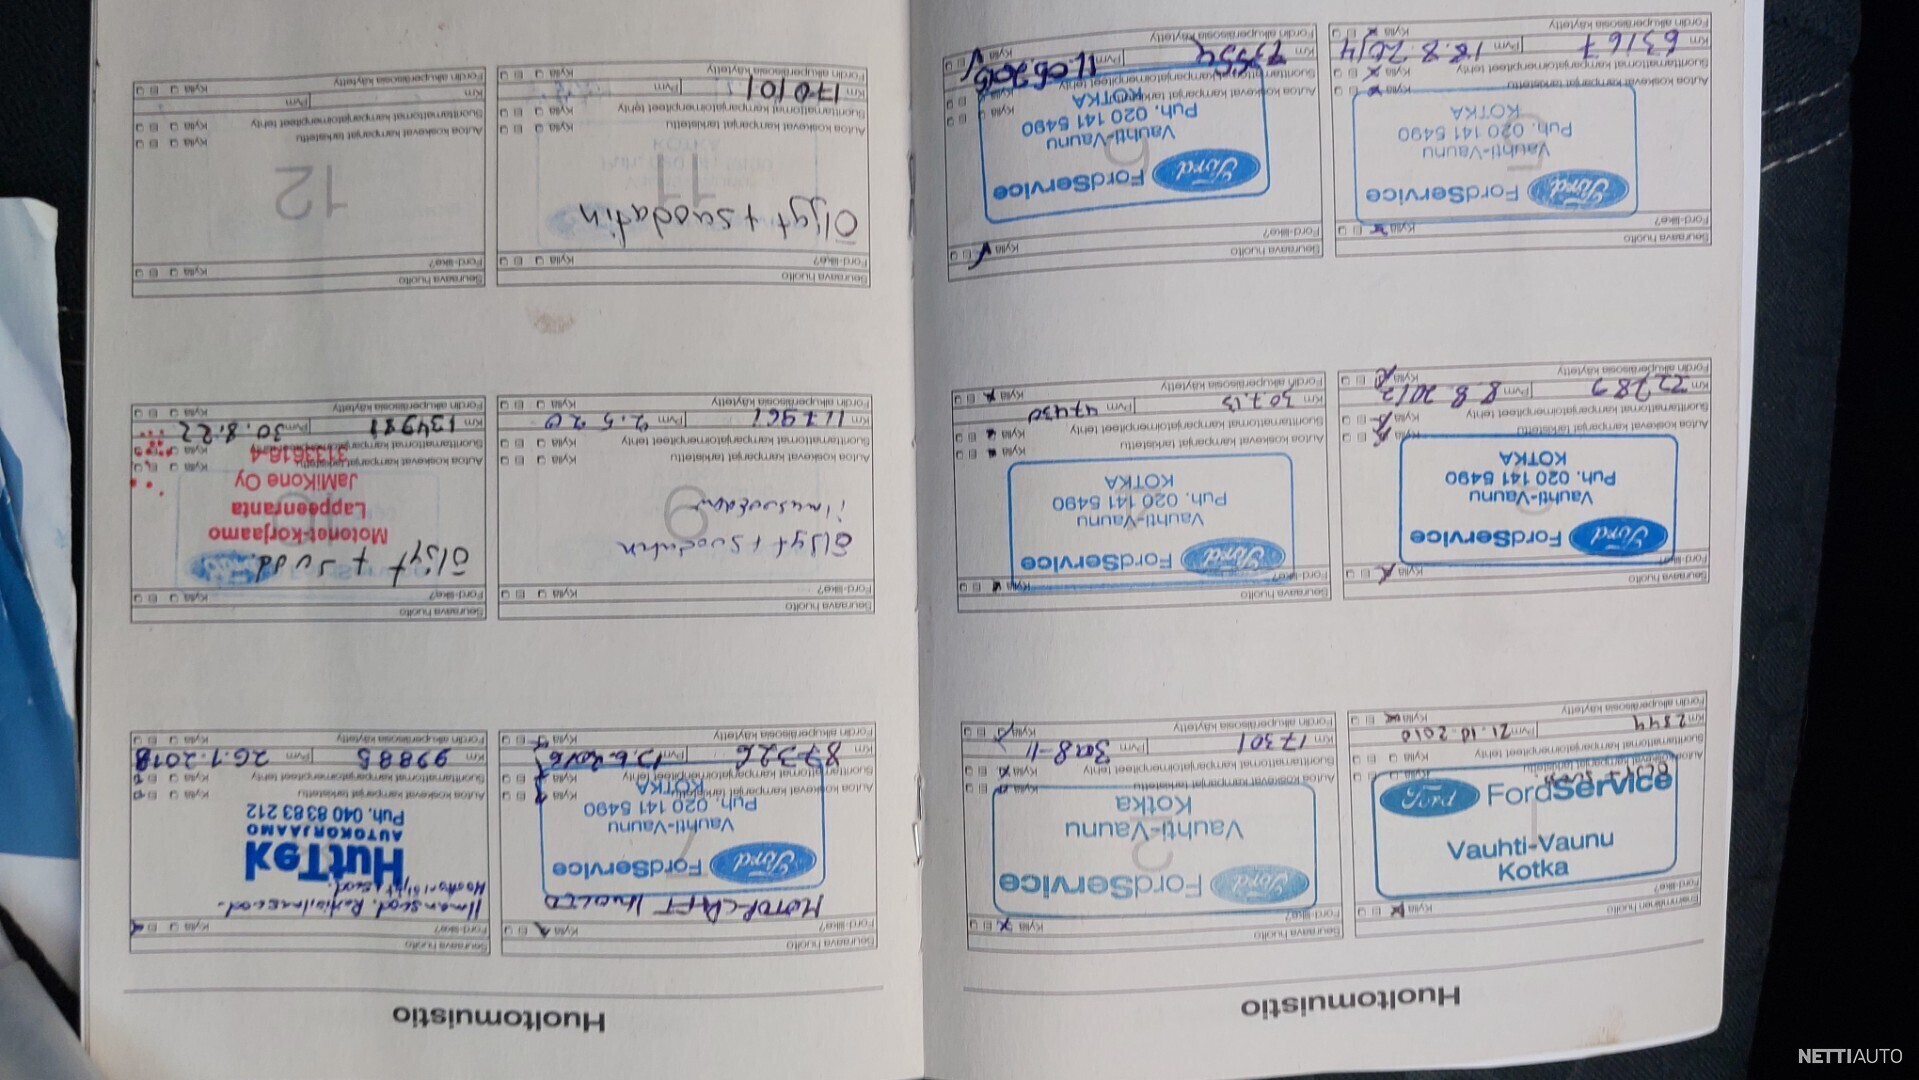 Huoltomuistio
Ensimmäinen huolto
Ford-liike?
Kyllä Ei
FordService
Vauhti-Vaunu
Kotka
Autoa koskevat kampanjat tarkistettu
Suorittamattomat kampanjatoimenpiteet tehty
Km 2844 Pvm 21.10.2010
Fordin alkuperäisosia käytetty
Kyllä Ei
Seuraava huolto
Ford-liike?
Kyllä Ei
FordService
Vauhti-Vaunu
Kotka
Autoa koskevat kampanjat tarkistettu Kyllä Ei
Suorittamattomat kampanjatoimenpiteet tehty Kyllä Ei
Km 17301 Pvm 30.8-11
Fordin alkuperäisosia käytetty Kyllä Ei
Seuraava huolto
Ford-liike? Kyllä Ei
Ford FordService
Vauhti-Vaunu
Puh. 020 141 5490
KOTKA
Autoa koskevat kampanjat tarkistettu Kyllä Ei
Suorittamattomat kampanjatoimenpiteet tehty Kyllä Ei
Km Pvm 8.8.2012
Fordin alkuperäisosia käytetty Kyllä Ei
Seuraava huolto
Ford-liike? Kyllä Ei
Ford FordService
Vauhti-Vaunu
Puh. 020 141 5490
KOTKA
Autoa koskevat kampanjat tarkistettu Kyllä Ei
Suorittamattomat kampanjatoimenpiteet tehty Kyllä Ei
Km 30.7.13 Pvm 47430
Fordin alkuperäisosia käytetty Kyllä Ei
Seuraava huolto
Ford-liike? Kyllä Ei
Ford FordService
Vauhti-Vaunu
Puh. 020 141 5490
KOTKA
Autoa koskevat kampanjat tarkistettu Kyllä Ei
Suorittamattomat kampanjatoimenpiteet tehty Kyllä Ei
Km 63167 Pvm 18.8.2014
Fordin alkuperäisosia käytetty Kyllä Ei
Seuraava huolto
Ford-liike? Kyllä Ei
Ford FordService
Vauhti-Vaunu
Puh. 020 141 5490
KOTKA
Autoa koskevat kampanjat tarkistettu Kyllä Ei
Suorittamattomat kampanjatoimenpiteet tehty Kyllä Ei
Km Pvm 11.06.2015
Fordin alkuperäisosia käytetty Kyllä Ei
Huoltomuistio
Seuraava huolto
Ford-liike? Kyllä Ei
MOTORCRAFT HUOLTO
Ford FordService
Vauhti-Vaunu
Puh. 020 141 5490
KOTKA
7
Autoa koskevat kampanjat tarkistettu Kyllä Ei
Suorittamattomat kampanjatoimenpiteet tehty Kyllä Ei
Km 87326 Pvm 13.6.2016
Fordin alkuperäisosia käytetty Kyllä Ei
Seuraava huolto
Ford-liike? Kyllä Ei
Ilmansuod. Raitisilmasuod.
HutTek
AUTOKORJAAMO
Puh. 040 8383 212
Autoa koskevat kampanjat tarkistettu Kyllä Ei
Suorittamattomat kampanjatoimenpiteet tehty Kyllä Ei
Km 99885 Pvm 26.1.2018
Fordin alkuperäisosia käytetty Kyllä Ei
Seuraava huolto
Ford-liike? Kyllä Ei
öljyt + suodatin
9
Autoa koskevat kampanjat tarkistettu Kyllä Ei
Suorittamattomat kampanjatoimenpiteet tehty Kyllä Ei
Km 117967 Pvm 2.5.20
Fordin alkuperäisosia käytetty Kyllä Ei
Seuraava huolto
Ford-liike? Kyllä Ei
öljyt + suod.
Motonet-Korjaamo
Lappeenranta
JaMiKone Oy
3133616-4
10
Autoa koskevat kampanjat tarkistettu Kyllä Ei
Suorittamattomat kampanjatoimenpiteet tehty Kyllä Ei
Km 134981 Pvm 30.8.22
Fordin alkuperäisosia käytetty Kyllä Ei
Seuraava huolto
Ford-liike? Kyllä Ei
Öljyt + suodatin
11
Autoa koskevat kampanjat tarkistettu Kyllä Ei
Suorittamattomat kampanjatoimenpiteet tehty Kyllä Ei
Km 170101 Pvm
Fordin alkuperäisosia käytetty Kyllä Ei
Seuraava huolto
Ford-liike? Kyllä Ei
12
Autoa koskevat kampanjat tarkistettu Kyllä Ei
Suorittamattomat kampanjatoimenpiteet tehty Kyllä Ei
Km Pvm
Fordin alkuperäisosia käytetty Kyllä Ei
NETTIAUTO